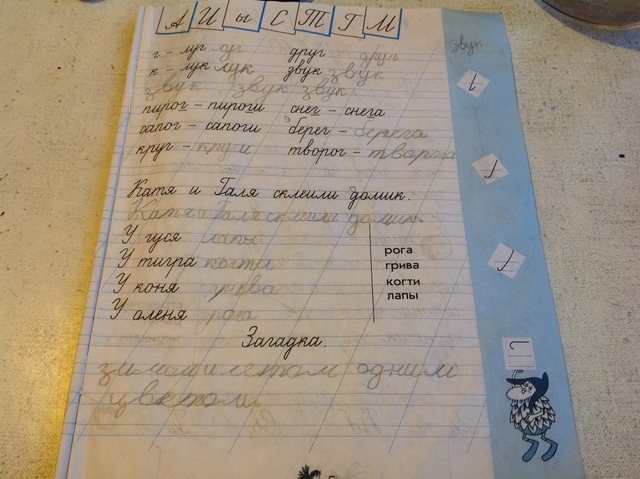 А И ы С Т Г М
звук
г – луг луг друг друг
к – лук лук звук звук
звук звук звук
пирог – пироги снег – снега
сапог – сапоги берег – берега
круг – круги творог – творога
Катя и Галя склеили домик.
Катя и Галя склеили домик
У гуся лапы
У тигра когти
У коня грива
У оленя рога
рога
грива
когти
лапы
Загадка.
зимой и летом одним
цветом